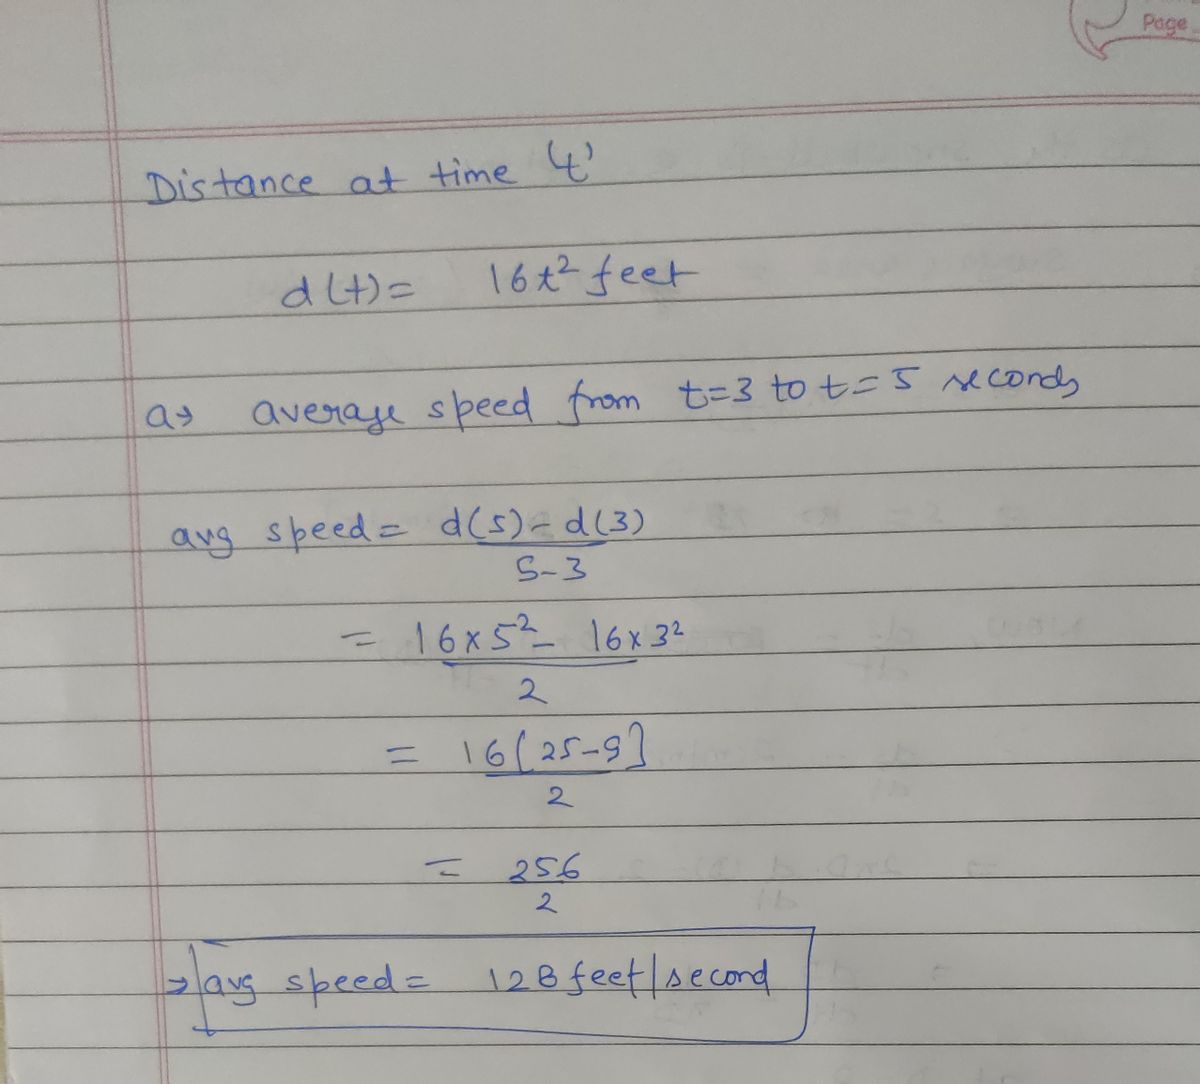 Page
Distance at time 't'
d(t) = 16t² feet
a→ average speed from t=3 to t=5 seconds
avg speed = d(5) - d(3)
5-3
= 16x5² - 16x3²
2
= 16[25-9]
2
= 256
2
→ avg speed = 128 feet/second